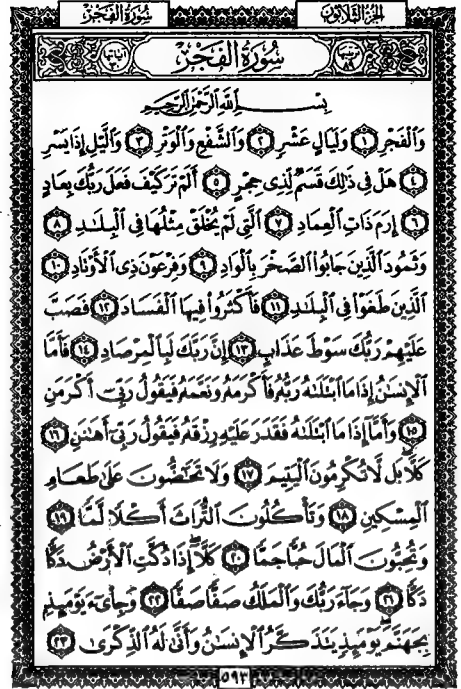 الجزء الثلاثون
سورة الفجر
سُورَةُ الْفَجْرِ
بِسْمِ اللَّهِ الرَّحْمَٰنِ الرَّحِيمِ
وَالْفَجْرِ ١ وَلَيَالٍ عَشْرٍ ٢ وَالشَّفْعِ وَالْوَتْرِ ٣ وَاللَّيْلِ إِذَا يَسْرِ
٤ هَلْ فِي ذَٰلِكَ قَسَمٌ لِّذِي حِجْرٍ ٥ أَلَمْ تَرَ كَيْفَ فَعَلَ رَبُّكَ بِعَادٍ
٦ إِرَمَ ذَاتِ الْعِمَادِ ٧ الَّتِي لَمْ يُخْلَقْ مِثْلُهَا فِي الْبِلَٰدِ ٨
وَثَمُودَ الَّذِينَ جَابُوا الصَّخْرَ بِالْوَادِ ٩ وَفِرْعَوْنَ ذِي الْأَوْتَادِ ١٠
الَّذِينَ طَغَوْا فِي الْبِلَٰدِ ١١ فَأَكْثَرُوا فِيهَا الْفَسَادَ ١٢ فَصَبَّ
عَلَيْهِمْ رَبُّكَ سَوْطَ عَذَابٍ ١٣ إِنَّ رَبَّكَ لَبِالْمِرْصَادِ ١٤ فَأَمَّا
الْإِنسَٰنُ إِذَا مَا ابْتَلَىٰهُ رَبُّهُ فَأَكْرَمَهُ وَنَعَّمَهُ فَيَقُولُ رَبِّي أَكْرَمَنِ
١٥ وَأَمَّا إِذَا مَا ابْتَلَىٰهُ فَقَدَرَ عَلَيْهِ رِزْقَهُ فَيَقُولُ رَبِّي أَهَٰنَنِ ١٦
كَلَّا بَل لَّا تُكْرِمُونَ الْيَتِيمَ ١٧ وَلَا تَحَٰضُّونَ عَلَىٰ طَعَامِ
الْمِسْكِينِ ١٨ وَتَأْكُلُونَ التُّرَاثَ أَكْلًا لَّمًّا ١٩
وَتُحِبُّونَ الْمَالَ حُبًّا جَمًّا ٢٠ كَلَّا إِذَا دُكَّتِ الْأَرْضُ دَكًّا
دَكًّا ٢١ وَجَاءَ رَبُّكَ وَالْمَلَكُ صَفًّا صَفًّا ٢٢ وَجِا۟يٓءَ يَوْمَئِذٍ
بِجَهَنَّمَ يَوْمَئِذٍ يَتَذَكَّرُ الْإِنسَٰنُ وَأَنَّىٰ لَهُ الذِّكْرَىٰ ٢٣
٥٩٣